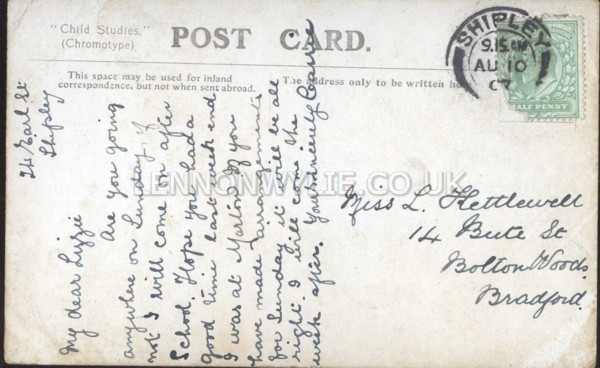 "Child Studies,"
(Chromotype)
POST CARD.
This space may be used for inland
correspondence, but not when sent abroad.
The address only to be written he
SHIPLEY
9.15 AM
AU 10
07
HALF PENNY
24 Earl St
Shipley
My dear Lizzie
Are you going
anywhere on Sunday if
not I will come on after
School. Hope you had a
good time last week end
I was at Marton. If you
have made arrangements
for Sunday it will be all
right I will come the
week after. Yours sincerely
Miss L. Kettlewell
14 Bute St
Bolton Woods
Bradford.
LENNONWYLIE.CO.UK